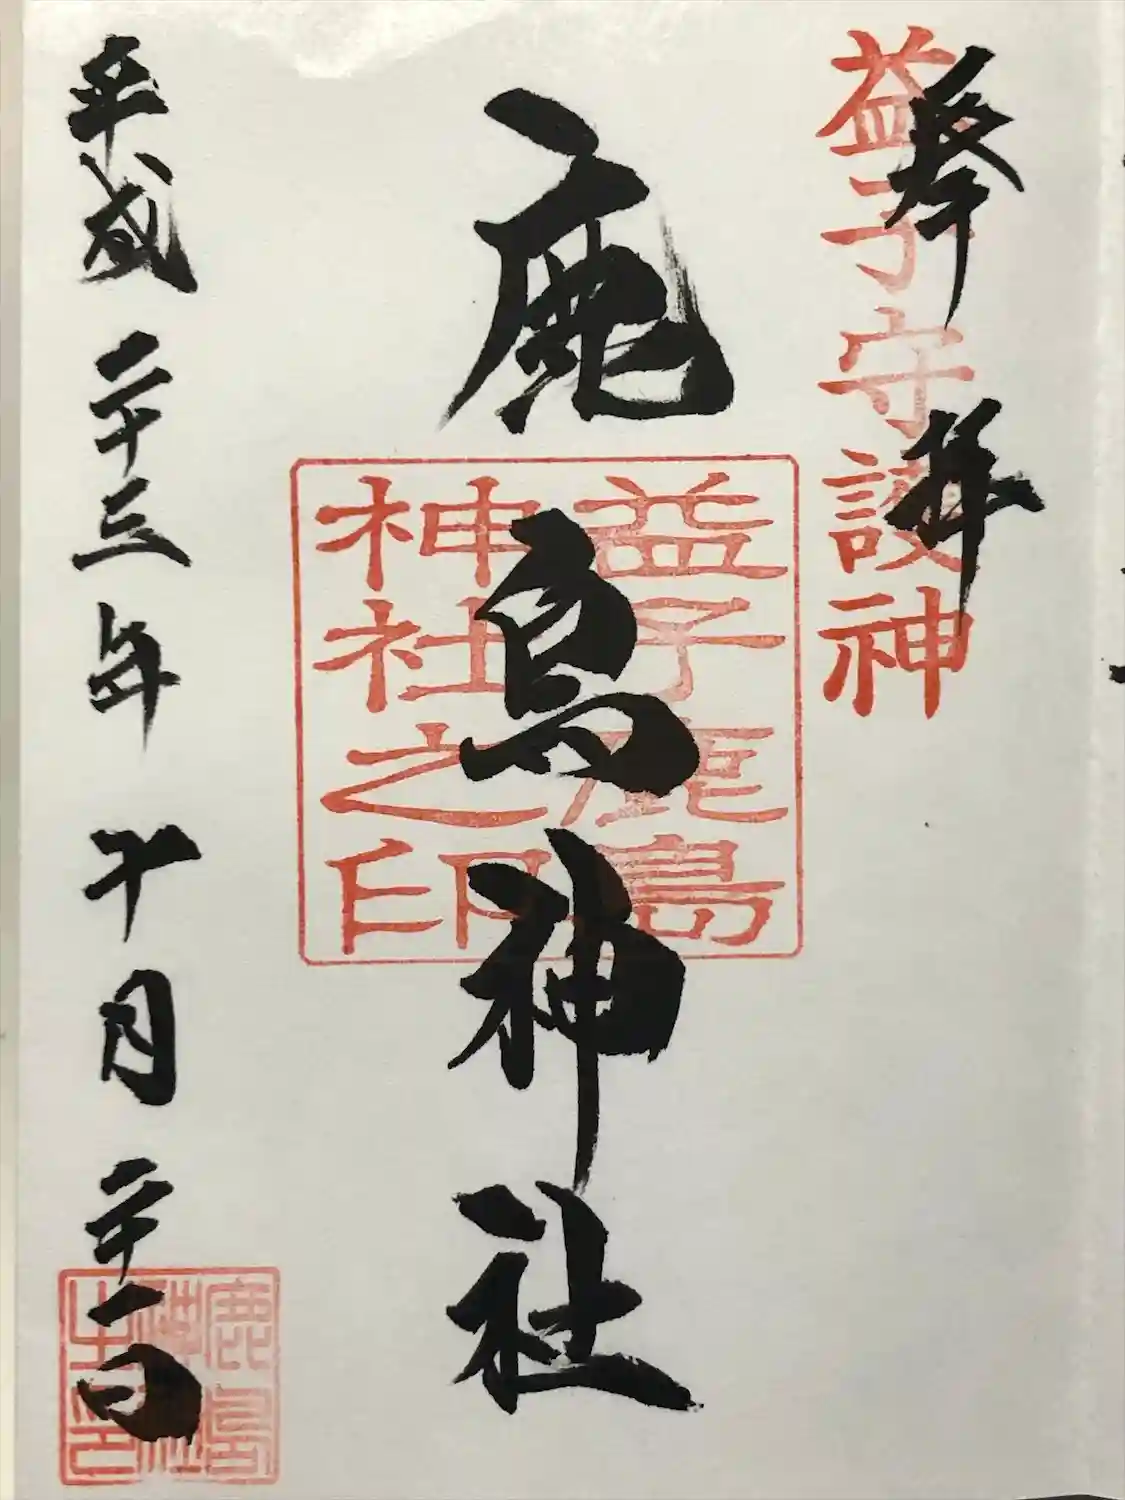 奉拝
益子守護神
鹿島神社
益子鹿島
神社之印
平成二十三年十月二十一日
鹿島
神社
之印